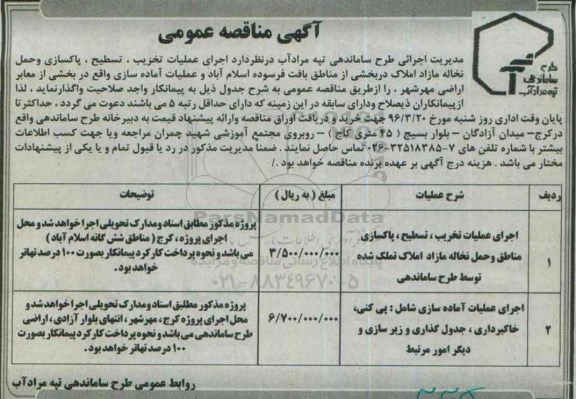 آگهی مناقصه عمومی
طرح
ساماندهی
تپه مرادآب
مدیریت اجرائی طرح ساماندهی تپه مرادآب درنظردارد اجرای عملیات تخریب ، تسطیح ، پاکسازی وحمل
نخاله مازاد املاک دربخشی از مناطق بافت فرسوده اسلام آباد و عملیات آماده سازی واقع در بخشی از معابر
اراضی مهرشهر ، را ازطریق مناقصه عمومی به شرح جدول ذیل به پیمانکار واجد صلاحیت واگذارنماید ، لذا
از پیمانکاران ذیصلاح ودارای سابقه در این زمینه که دارای حداقل رتبه 5 می باشند دعوت می گردد ، حداکثر تا
پایان وقت اداری روز شنبه مورخ ۹۶/۳/۲۰ جهت خرید و دریافت اوراق مناقصه وارائه پیشنهاد قیمت به دبیرخانه طرح ساماندهی واقع
درکرج– میدان آزادگان – بلوار بسیج ( ۴۵ متری کاج ) – روبروی مجتمع آموزشی شهید چمران مراجعه ویا جهت کسب اطلاعات
بیشتر با شماره تلفن های ۷-۳۲۵۱۸۳۸۵-۰۲۶ تماس حاصل نمایند . ضمنا مدیریت مذکور در رد یا قبول تمام و یا یکی از پیشنهادات
مختار می باشد . هزینه درج آگهی بر عهده برنده مناقصه خواهد بود ./
ردیف شرح عملیات مبلغ ( به ریال ) توضیحات
۱ اجرای عملیات تخریب ، تسطیح ، پاکسازی
مناطق وحمل نخاله مازاد املاک تملک شده
توسط طرح ساماندهی
۳/۵۰۰/۰۰۰/۰۰۰
پروژه مذکور مطابق اسناد ومدارک تحویلی اجرا خواهد شد و محل
اجرای پروژه ، کرج ( مناطق شش گانه اسلام آباد )
می باشد و نحوه پرداخت کارکرد پیمانکار بصورت ۱۰۰ درصد تهاتر
خواهد بود.
۲ اجرای عملیات آماده سازی شامل : پی کنی،
خاکبرداری ، جدول گذاری و زیر سازی و
دیگر امور مرتبط
۶/۷۰۰/۰۰۰/۰۰۰
پروژه مذکور مطابق اسناد ومدارک تحویلی اجرا خواهد شد و
محل اجرای پروژه کرج، مهرشهر ، انتهای بلوار آزادی ، اراضی
طرح ساماندهی می باشد و نحوه پرداخت کارکرد پیمانکار بصورت
۱۰۰ درصد تهاتر خواهد بود.
ParsNamadData
۰۲۱-۸۸۳۴۹۶۷۰-۵
روابط عمومی طرح ساماندهی تپه مرادآب